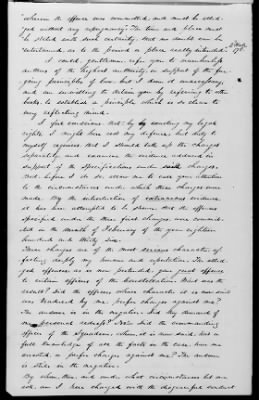 wherein the offence was committed, and must be alled-
ged without any repugnancy. The time and place must
be stated with such certainty, that no doubt can be
entertained, as to the period or place really intended.
I could, gentlemen, refer you to numberless
authors of the highest authority, in support of the fore-
going principles of law; but I deem it unnecessary,
and am unwilling to detain you by referring to other
books, to establish a principle which is so clear to
every reflecting mind.
I feel conscious that by making my legal
rights I might here rest my defence, but duty to
myself requires that I should take up the charges
separately and examine the evidence adduced in
support of the specifications under each charge,
But before I do so, allow me to call your attention
to the circumstances under which these charges were
made. By the introduction of extraneous evidence,
it has been attempted to be shown, that the offences
specified under the three first charges, were commit-
ted in the month of February of the year eighteen
hundred and thirty six.
These charges are of the most serious character af-
fecting deeply my honour and reputation. The alled-
ged offences as is now pretended, gave great offence
to certain officers of the Constellation. What was the
result? Did the officers whose character it is now said
was traduced by me, prefer charges against me?
The answer is in the negative. Did they demand of
me personal redress? No. Did the commanding
officer of the Squadron, whom, it is now said, had a
full knowledge of all the facts in the case, have me
arrested, or prefer charges against me? The answer
is still in the negative.
By whom, then, and under what circumstances let me
ask, am I here charged with the disgraceful conduct